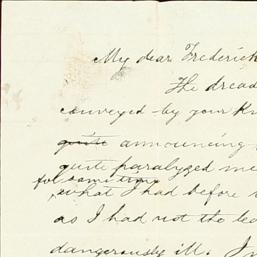 My dear Frederick
The dread
conveyed by your
quite announcing
quite paralyzed me
for some time
what I had before
as I had not the lea
dangerously ill. I